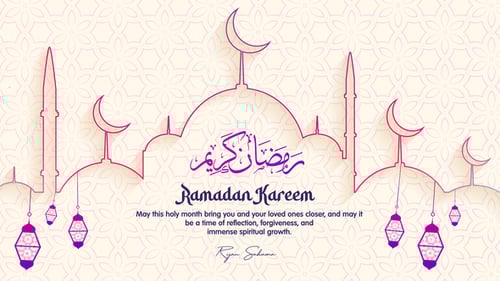 رمضان كريم
Ramadan Kareem
May this holy month bring you and your loved ones closer, and may it
be a time of reflection, forgiveness, and
immense spiritual growth.